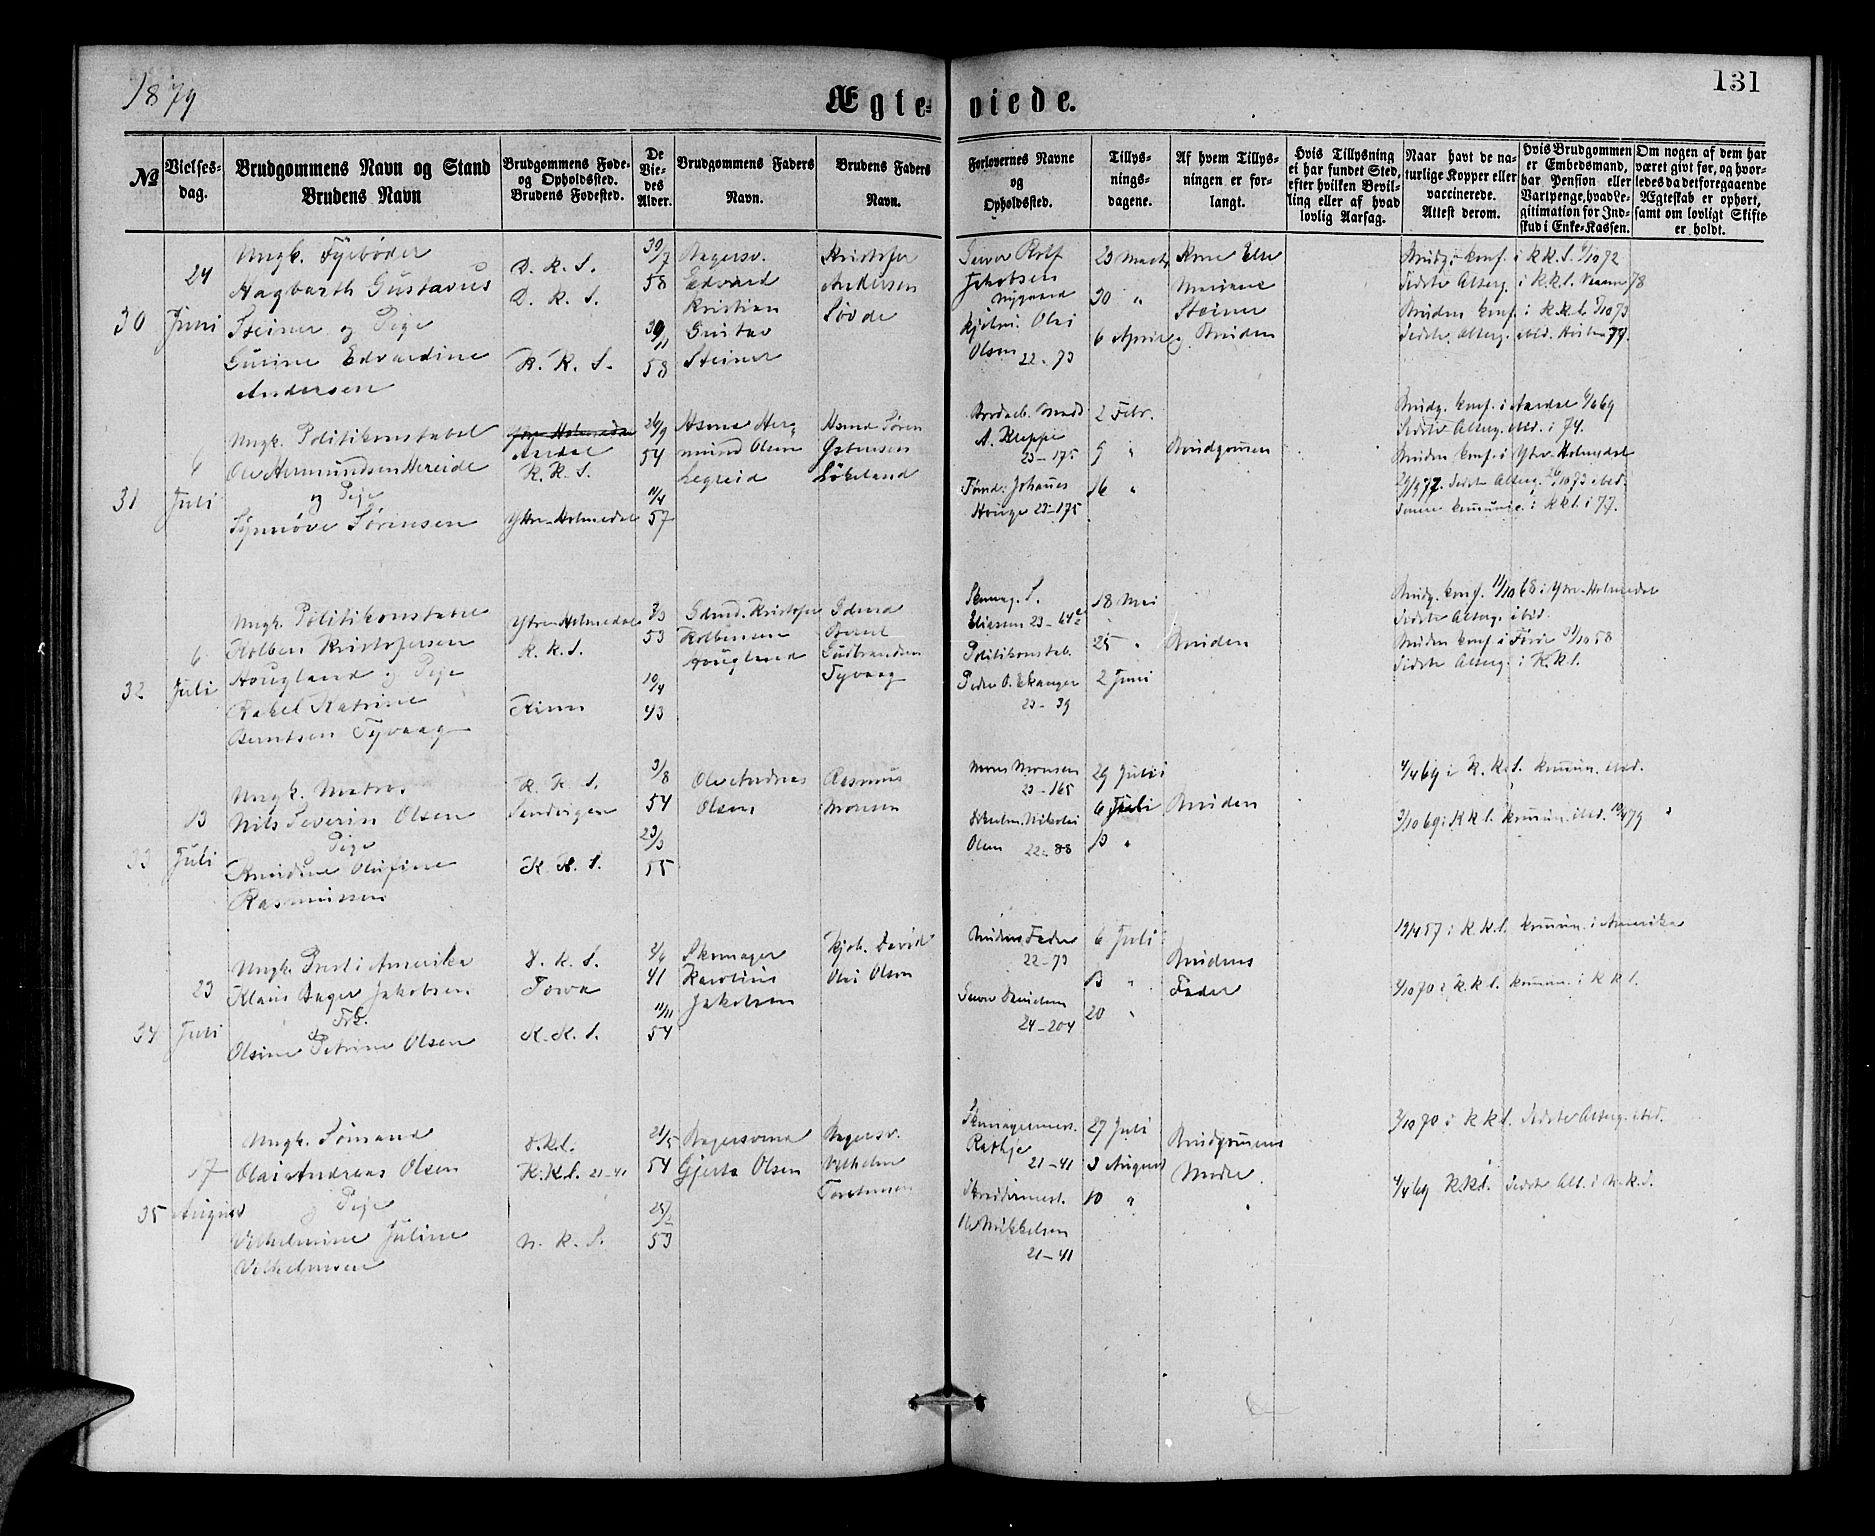 1879
131
Ægte-viede.
№
Vielses-
dag.
Brudgommens Navn og Stand
Brudens Navn
Brudgommens Føde-
og Opholdssted.
Brudens Fødested.
De
Vie-
des
Alder.
Brudgommens Faders
Navn.
Brudens Faders
Navn.
Forlovernes Navne
og
Opholdssted.
Tillys-
nings-
dagene.
Af hvem Tillys-
ningen er for-
langt.
Hvis Tillysning
ei har fundet Sted,
efter hvilken Bevil-
ling eller af hvad
lovlig Aarsag.
Naar havt de na-
turlige Kopper eller
vaccinerede.
Attest derom.
Hvis Brudgommen
er Embedsmand,
har Pension eller
Vartpenge, hvad Le-
gitimation for Ind-
skud i Enke-Kassen.
Om nogen af dem har
været givt før, og hvor-
ledes da det foregaaende
Ægteskab er ophørt,
samt om lovligt Skifte
er holdt.
30
24
Juni
Ungk. Fyrbøder
Hagbarth Gustavus
Steiner og Pige
Gurine Edvardine
Andersen
D. K. S.
D. K. S.
K. K. S.
30/7
58
30/11
58
Bagersv.
Edvard
Kristian
Gustav
Steiner
Kristofer
Andersen
Søvde
Rolf
Jakobsen
Nygaard
Olai
Olsen 22-73
23 Marts
30 "
6 April
Kone Else
Mariane
Steiner
og Bruden
Brudg. konf. i K.K.S. 6/10 72
Sidste Alterg. i K.K.S. 78
Bruden konf. i K.K.S. 5/10 73
Sidste Alterg. ibid. Høsten 77.
31
6
Juli
Ungk. Politikonstabel
Ole Hermundsen Hereide
og Pige
Synnøve Sørensen
Ytre-Holmedal
Ardal
K. K. S.
Ytre-Holmedal
26/9
54
11/4
57
Husmd Her-
mund Olsen
Legreid
Husmd Søren
Østensen
Løkeland
A. Kleppe
23-175
Tømd. Johanes
Hauge 23-175
2 Febr.
9 "
16 "
Brudgommen
Brudg. konf. i Aardal 6/6 69
Sidste Alterg. ibid. i 74.
Bruden konf. i Ytre Holmedal
29/9 72. Sidste Alterg. 26/10 73 ibid.
Senere kommunic. i K.K.S. i 77.
32
6
Juli
Ungk. Politikonstabel
Kolben Kristofersen
Hougland og Pige
Rakel Katrine
Berntsen Tyvaag
Ytre-Holmedal
K. K. S.
Kinn
3/3
53
10/4
43
Gdmd. Kristofer
Kolbensen
Hougland
Gdmd
Bernt
Gudbrandsen
Tyvaag
Skomag. S.
Eliasen 23-64
Politikonstab.
Peder O. Ekanger
23-39
18 Mai
25 "
2 Juni
Bruden
Brudg. konf. 11/10 68 i Ytre-Holmedal
Sidste Alterg. ibid.
Bruden konf. i Førde 31/10 58
Sidste Alterg. i K.K.S.
33
13
Juli
Ungk. Matros
Nils Severin Olsen
og Pige
Knudine Olufine
Rasmussen
K. K. S.
Sandvigen
K. K. S.
3/8
54
23/3
55
Ole Andreas
Olsen
Rasmus
Monsen
Mons Monsen
23-165
Nikolai
Olsen 22-88
29 Juni
6 Juli
13 "
Bruden
4/4 69 i K.K.S. kommun. ibid.
3/10 69 i K.K.S. kommun. ibid. 10/4 79
34
23
Juli
Ungk. Prest i Amerika
Klaus Anger Jakobsen
og Frk.
Olsine Petrine Olsen
D. K. S.
Iowa
K. K. S.
2/6
41
11/11
54
Skomager
Karolius
Jakobsen
Kjøb. David
Olai Olsen
Brudens Fader
22-73
24-204
6 Juli
13 "
20 "
Brudens
Fader
19/4 57 i K.K.S. kommun. i Amerika
2/10 70 i K.K.S. kommun. i K.K.S.
35
17
August
Ungk. Sømand
Olai Andreas Olsen
og Pige
Vilhelmine Juline
Vilhelmsen
D.K.S.
K.K.S. 21-41
N. K. S.
21/5
54
25/2
53
Bagersvend
Gjerts Olsen
Bagersv.
Vilhelm
Torstensen
Skomagermest.
Rathje
21-41
Skreddermest.
Ole Mikkelsen
21-41
27 Juli
3 August
10 "
Brudgommens
Moder
2/10 70 i K.K.S. Sidste Alterg. ibid.
4/4 69 K.K.S. Sidste Alt. i N.K.S.